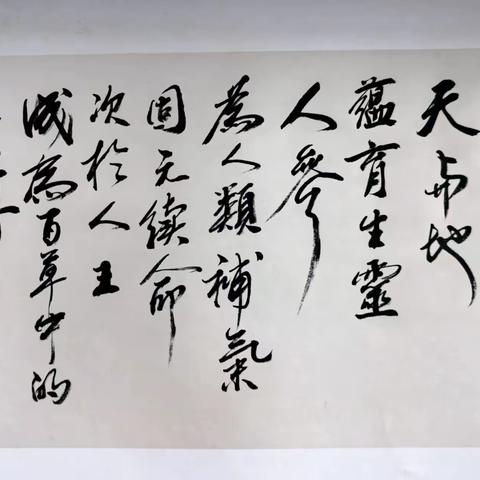 天與地
蘊育生靈
人參
為人類補氣
固元續命
次於人王
成為百草中的